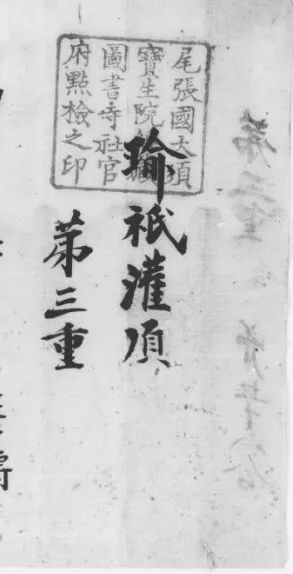 尾張國大須
寶生院
圖書寺社官
府點檢之印
瑜祇灌頂
苐三重